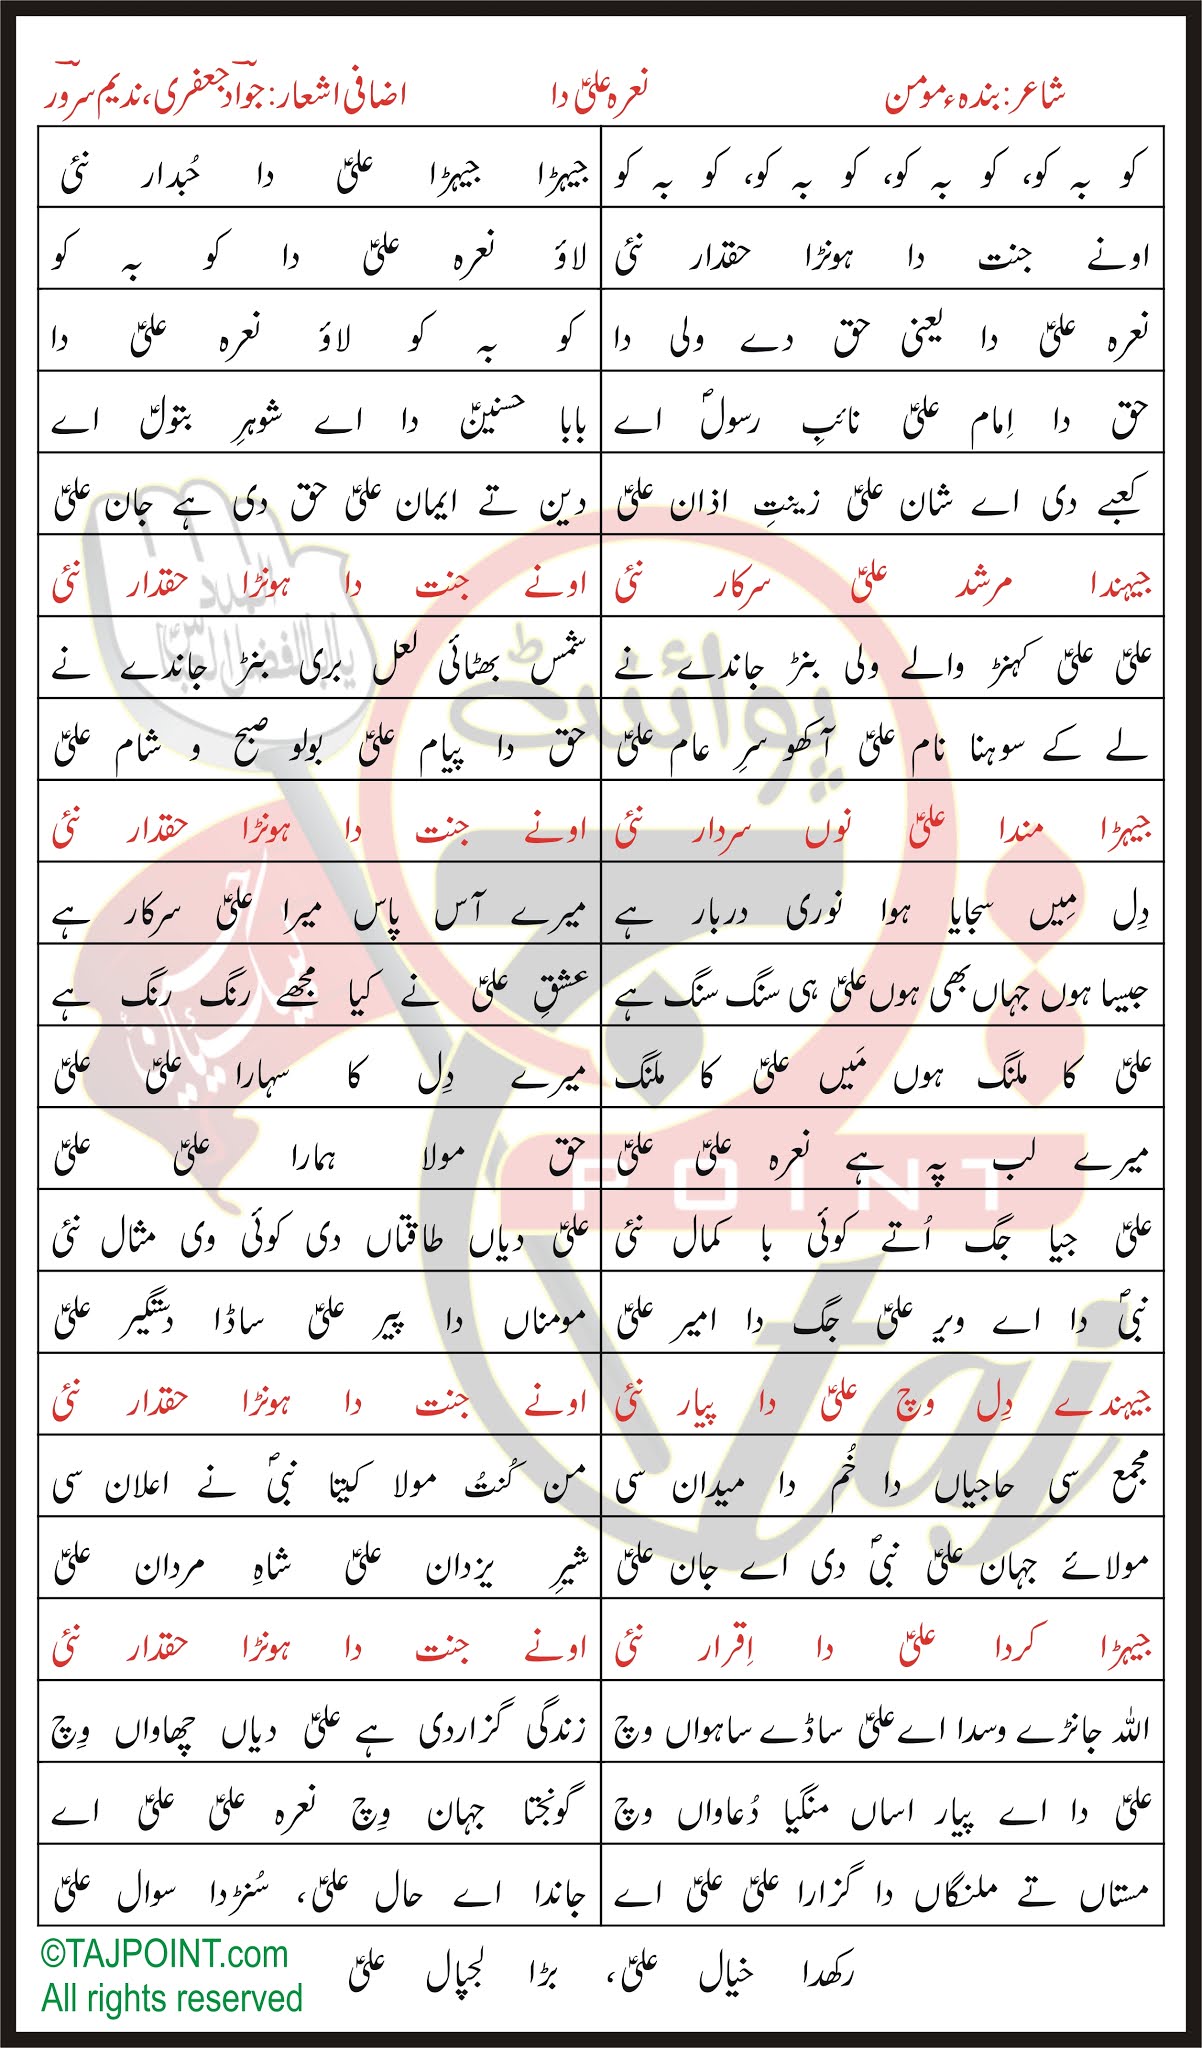 شاعر: بندہءِ مومن نعرہ علیؑ دا اضافی اشعار: جواد جعفری، ندیم سرور
کو بہ کو، کو بہ کو، کو بہ کو، کو بہ کو جیہڑا جیہڑا علیؑ دا حُبدار نئی
اونے جنت دا ہونڑا حقدار نئی لاؤ نعرہ علیؑ دا کو بہ کو
نعرہ علیؑ دا یعنی حق دے ولی دا کو بہ کو لاؤ نعرہ علیؑ دا
حق دا اِمام علیؑ نائبِ رسولؐ اے بابا حسنینؑ دا اے شوہرِ بتولؑ اے
کعبے دی اے شان علیؑ زینتِ اذان علیؑ دین تے ایمان علیؑ حق دی ہے جان علیؑ
جیہندا مرشد علیؑ سرکار نئی اونے جنت دا ہونڑا حقدار نئی
علیؑ علیؑ کہنڑ والے ولی بنڑ جاندے نے شمس بھٹائی لعل بری بنڑ جاندے نے
لے کے سوہنا نام علیؑ آکھو سرِ عام علیؑ حق دا پیام علیؑ بولو صبح و شام علیؑ
جیہڑا مندا علیؑ نوں سردار نئی اونے جنت دا ہونڑا حقدار نئی
دِل مِیں سجایا ہوا نوری دربار ہے میرے آس پاس میرا علیؑ سرکار ہے
جیسا ہوں جہاں بھی ہوں علیؑ ہی سنگ سنگ ہے عشقِ علیؑ نے کیا مجھے رنگ رنگ ہے
علیؑ کا ملنگ ہوں مَیں علیؑ کا ملنگ میرے دِل کا سہارا علیؑ علیؑ
میرے لب پہ ہے نعرہ علیؑ علیؑ حق مولا ہمارا علیؑ علیؑ
علیؑ جیا جگ اُتے کوئی با کمال نئی علیؑ دیاں طاقتاں دی کوئی وی مثال نئی
نبیؐ دا اے ویر علیؑ جگ دا امیر علیؑ مومناں دا پیر علیؑ ساڈا دستگیر علیؑ
جیہندے دِل وچ علیؑ دا پیار نئی اونے جنت دا ہونڑا حقدار نئی
مجمع سی حاجیاں دا خُم دا میدان سی من کُنتُ مولا کیتا نبیؐ نے اعلان سی
مولائے جہان علیؑ نبیؐ دی اے جان علیؑ شیرِ یزدان علیؑ شاہِ مردان علیؑ
جیہڑا کردا علیؑ دا اِقرار نئی اونے جنت دا ہونڑا حقدار نئی
اللہ جانڑے وسدا اے علیؑ ساڈے ساہواں وچ زندگی گزاردی ہے علیؑ دیاں چھاواں وِچ
علیؑ دا اے پیار اساں منگیا دُعاواں وچ گونجتا جہان وِچ نعرہ علیؑ علیؑ اے
مستاں تے ملنگاں دا گزارا علیؑ علیؑ اے جاندا اے حال علیؑ، سُنڑدا سوال علیؑ
رکھدا خیال علیؑ، بڑا لجپال علیؑ
©TAJPOINT.com
All rights reserved
پوائنٹ
POINT
taj